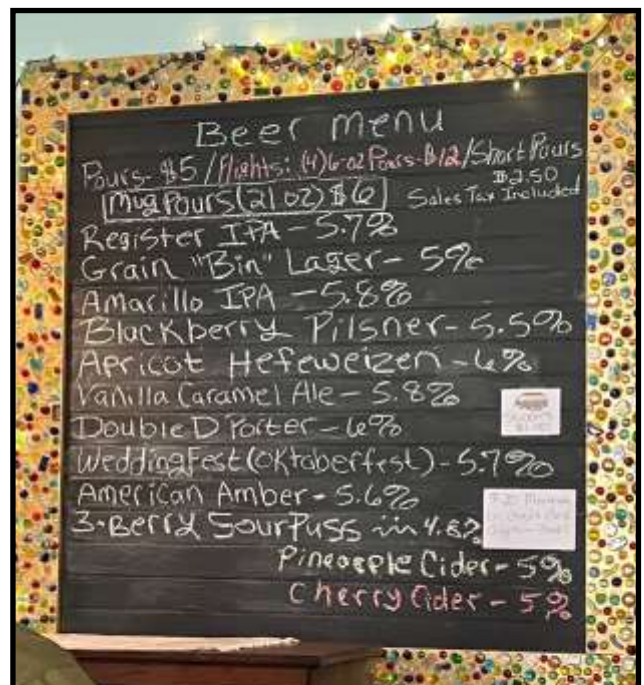 Beer Menu
Pours- $5 / Flights: (4) 6-oz Pours-$12 / Short Pours
$2.50
Mug Pours (21 oz) $6
Sales Tax Included
Register IPA - 5.7%
Grain "Bin" Lager - 5%
Amarillo IPA - 5.8%
Blackberry Pilsner - 5.5%
Apricot Hefeweizen - 6%
Vanilla Caramel Ale - 5.8%
Double D Porter - 6%
WeddingFest (Oktoberfest) - 5.7%
American Amber - 5.6%
3-Berry SourPuss 4.8%
Pineapple Cider - 5%
Cherry Cider - 5%